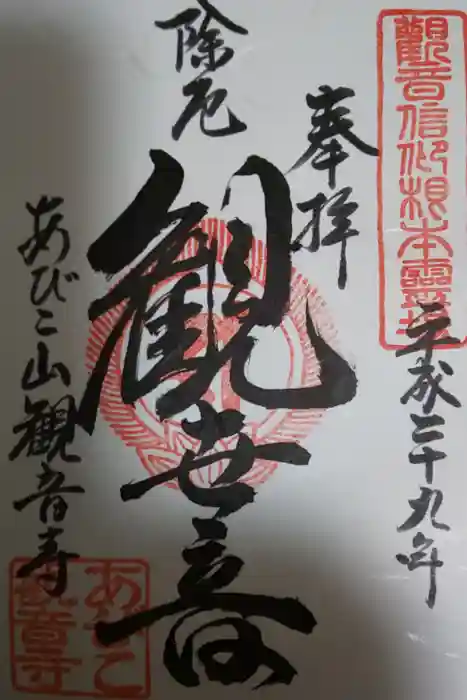 觀音信仰根本靈場
平成二十九年
奉拝
除厄
観世音
あびこ山観音寺
あびこ
観音寺